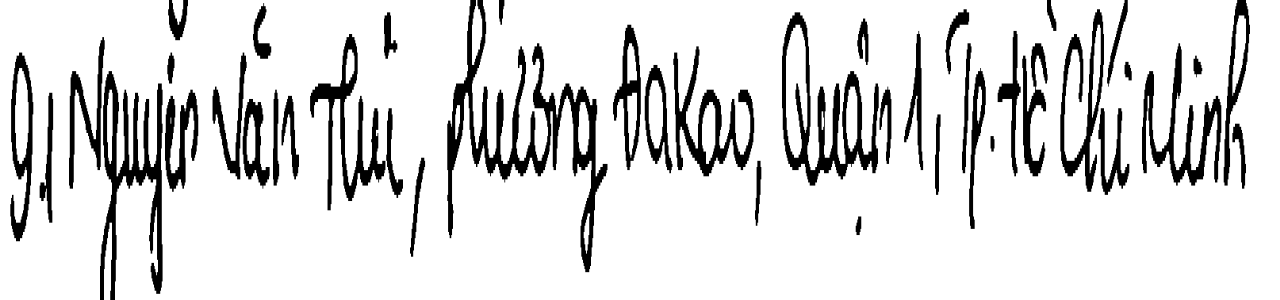 91 Nguyễn Văn Thủ, phường Đa Kao, Quận 1, Tp. Hồ Chí Minh